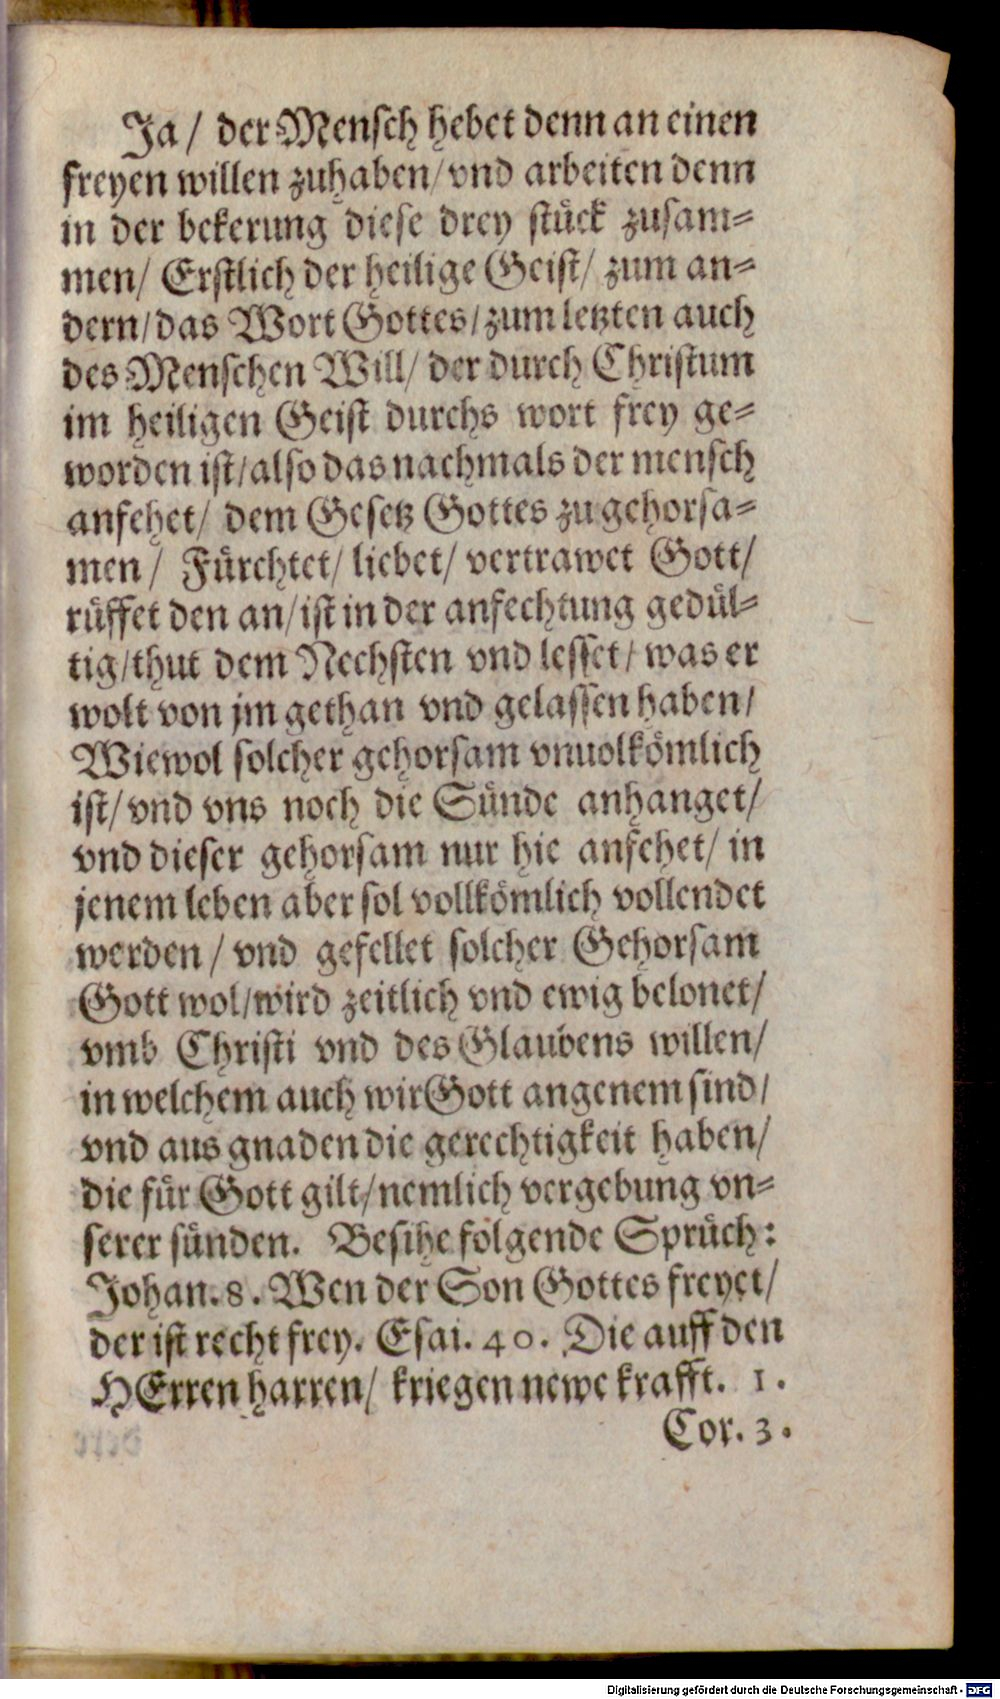 Ja / der Mensch hebet denn an einen
freyen willen zuhaben / vnd arbeiten denn
in der bekerung diese drey stück zusam⸗
men / Erstlich der heilige Geist / zum an⸗
dern / das Wort Gottes / zum letzten auch
des Menschen Will / der durch Christum
im heiligen Geist durchs wort frey ge⸗
worden ist / also das nachmals der mensch
anfehet / dem Gesetz Gottes zu gehorsa⸗
men / Fürchtet / liebet / vertrawet Gott /
rüffet den an / ist in der anfechtung gedül⸗
tig / thut dem Nechsten vnd lesset / was er
wolt von jm gethan vnd gelassen haben /
Wiewol solcher gehorsam vnuolkömlich
ist / vnd vns noch die Sünde anhanget /
vnd dieser gehorsam nur hie anfehet / in
jenem leben aber sol vollkömlich vollendet
werden / vnd gefellet solcher Gehorsam
Gott wol / wird zeitlich vnd ewig belonet /
vmb Christi vnd des Glaubens willen /
in welchem auch wir Gott angenem sind /
vnd aus gnaden die gerechtigkeit haben /
die für Gott gilt / nemlich vergebung vn⸗
serer sünden. Besihe folgende Sprüch:
Johan. 8. Wen der Son Gottes freyet /
der ist recht frey. Esai. 40. Die auff den
HErren harren / kriegen newe krafft. 1.
Cor. 3.
Digitalisierung gefördert durch die Deutsche Forschungsgemeinschaft - DFG